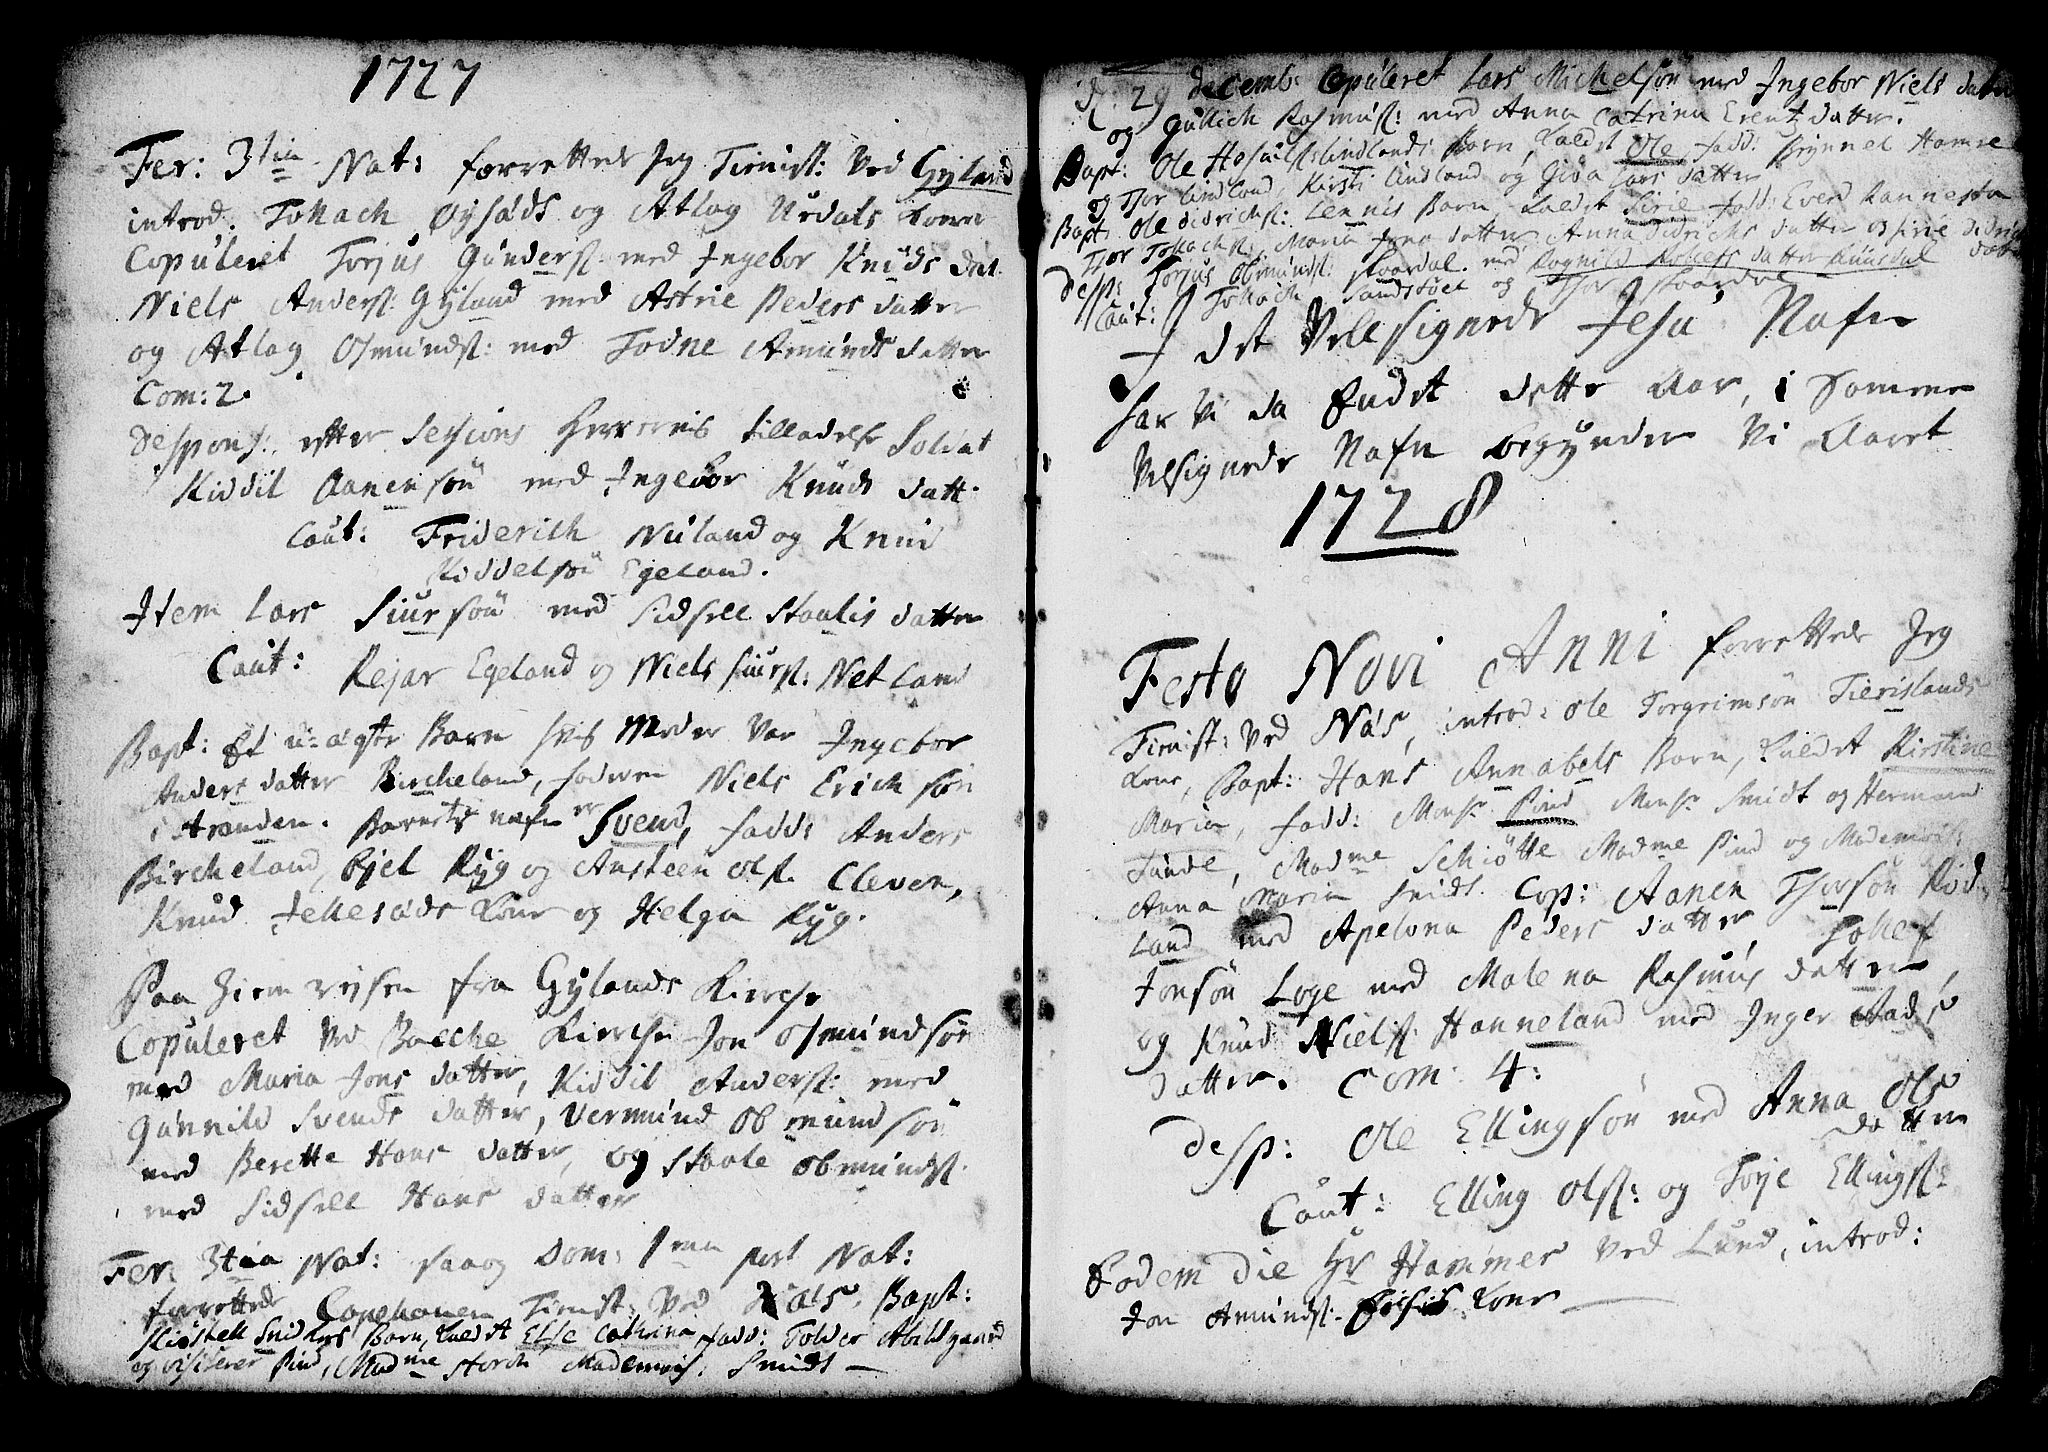 1727
Fer: 3tia Nat: forrettede Jeg Tienist: ved Gyland
introd. Tollach Øysøds og Atlag Urdals Koner
Copuleret Torjus Gunders: med Ingebor Knuds dat.
Niels Anders: Gyland med Astrie Peders datter
og Atlag Osmunds: med Todne Amunds datter
Com: 2.
Despons: efter Sessions Herrernis tilladelse Soldat
Kiddil Aanensøn med Ingebor Knuds datt.
Caut: Friderich Nuland og Knud
Kiddelsøn Egeland.
Item Lars Siursøn med Sidsell Staalis datter
Caut: Rejar Egeland og Niels Siurs: Netland
Bapt: Et u-ægte Barn hvis Moder var Ingebor
Anders datter Bircheland, faderen Niels Erichsøn
i Stranden. Barnets nafn er Svend, fadd: Anders
Bircheland, Kjel Ryg og Ansteen Ols. Cleven,
Knud Jellesøds Kone og Helga Ryg.
Paa Hiemrejsen fra Gylands Kirche
Copuleret ved Backe Kirche Jon Osmundsøn
med Maria Jons datter, Kiddil Anders: med
Gunnild Svends datter, Vermund Obmundsøn
med Berette Hans datter, og Staale Obmunds.
med Sidsell Hans datter
Fer: 3tia Nat: saa og Dom: 1ma post Nat:
forrettede Capellanen Tienist: ved Næs. Bapt:
Snidkers Barn, kaldet Else Cathrina, fadd: Tolder Abildgaard
og visiterer Pind, Madme Storch Mademois: Smidt
d. 29 decemb: Copuleret Lars Michelsøn med Ingebor Niels datter
og Gullich Rasmus: med Anna Catrina Erents datter.
Bapt: Ole Lindlands Barn, kaldet Ole, fadd: Brynnel Hamre
og Thor Lindland, Kirsti Lindland og Giva Lars datter
Bapt: Ole Didrichs: Lennis Barn kaldet Sirie fadd: Everd Rannestøn
Thor Tollachs: Maria Jons datter Anna Didrichs datter og Sirie Didrichs
datter
Desp: Torjus Obmunds: Skaardal med Ragnild Rollefs datter
Caut: Tollach Sandstøel og Thor Skaardal
I det Velsignede Jesu Nafn
har Vi da Endet dette Aar, i Samme
Velsignede Nafn begynder Vi Aaret
1728
Festo Novi Anni forrettede Jeg
Tienist: ved Næs, introd: Ole Torgrimsøn Tierislands
Kone, Bapt: Hans Annabels Barn, kaldet Kirstine
Maria, fadd: Monsr Pind Monsr Smidt og Hermand
Sunde, Madme Schiøtte Madme Pind og Mademois:
Anna Maria Smidt. Cop: Aanen Thorsøn Rød-
land med Apelona Peders datter, Tollef
Jonsøn Loge med Malena Rasmus datter,
og Knud Niels: Hanneland med Inger Aads
datter. Com: 4:
Desp: Ole Ellingsøn med Anna Ols
datter
Caut: Elling Ols: og Torje Ellings:
Eodem Die Hr Hammer ved Lund, introd:
Jon Amunds: Kone